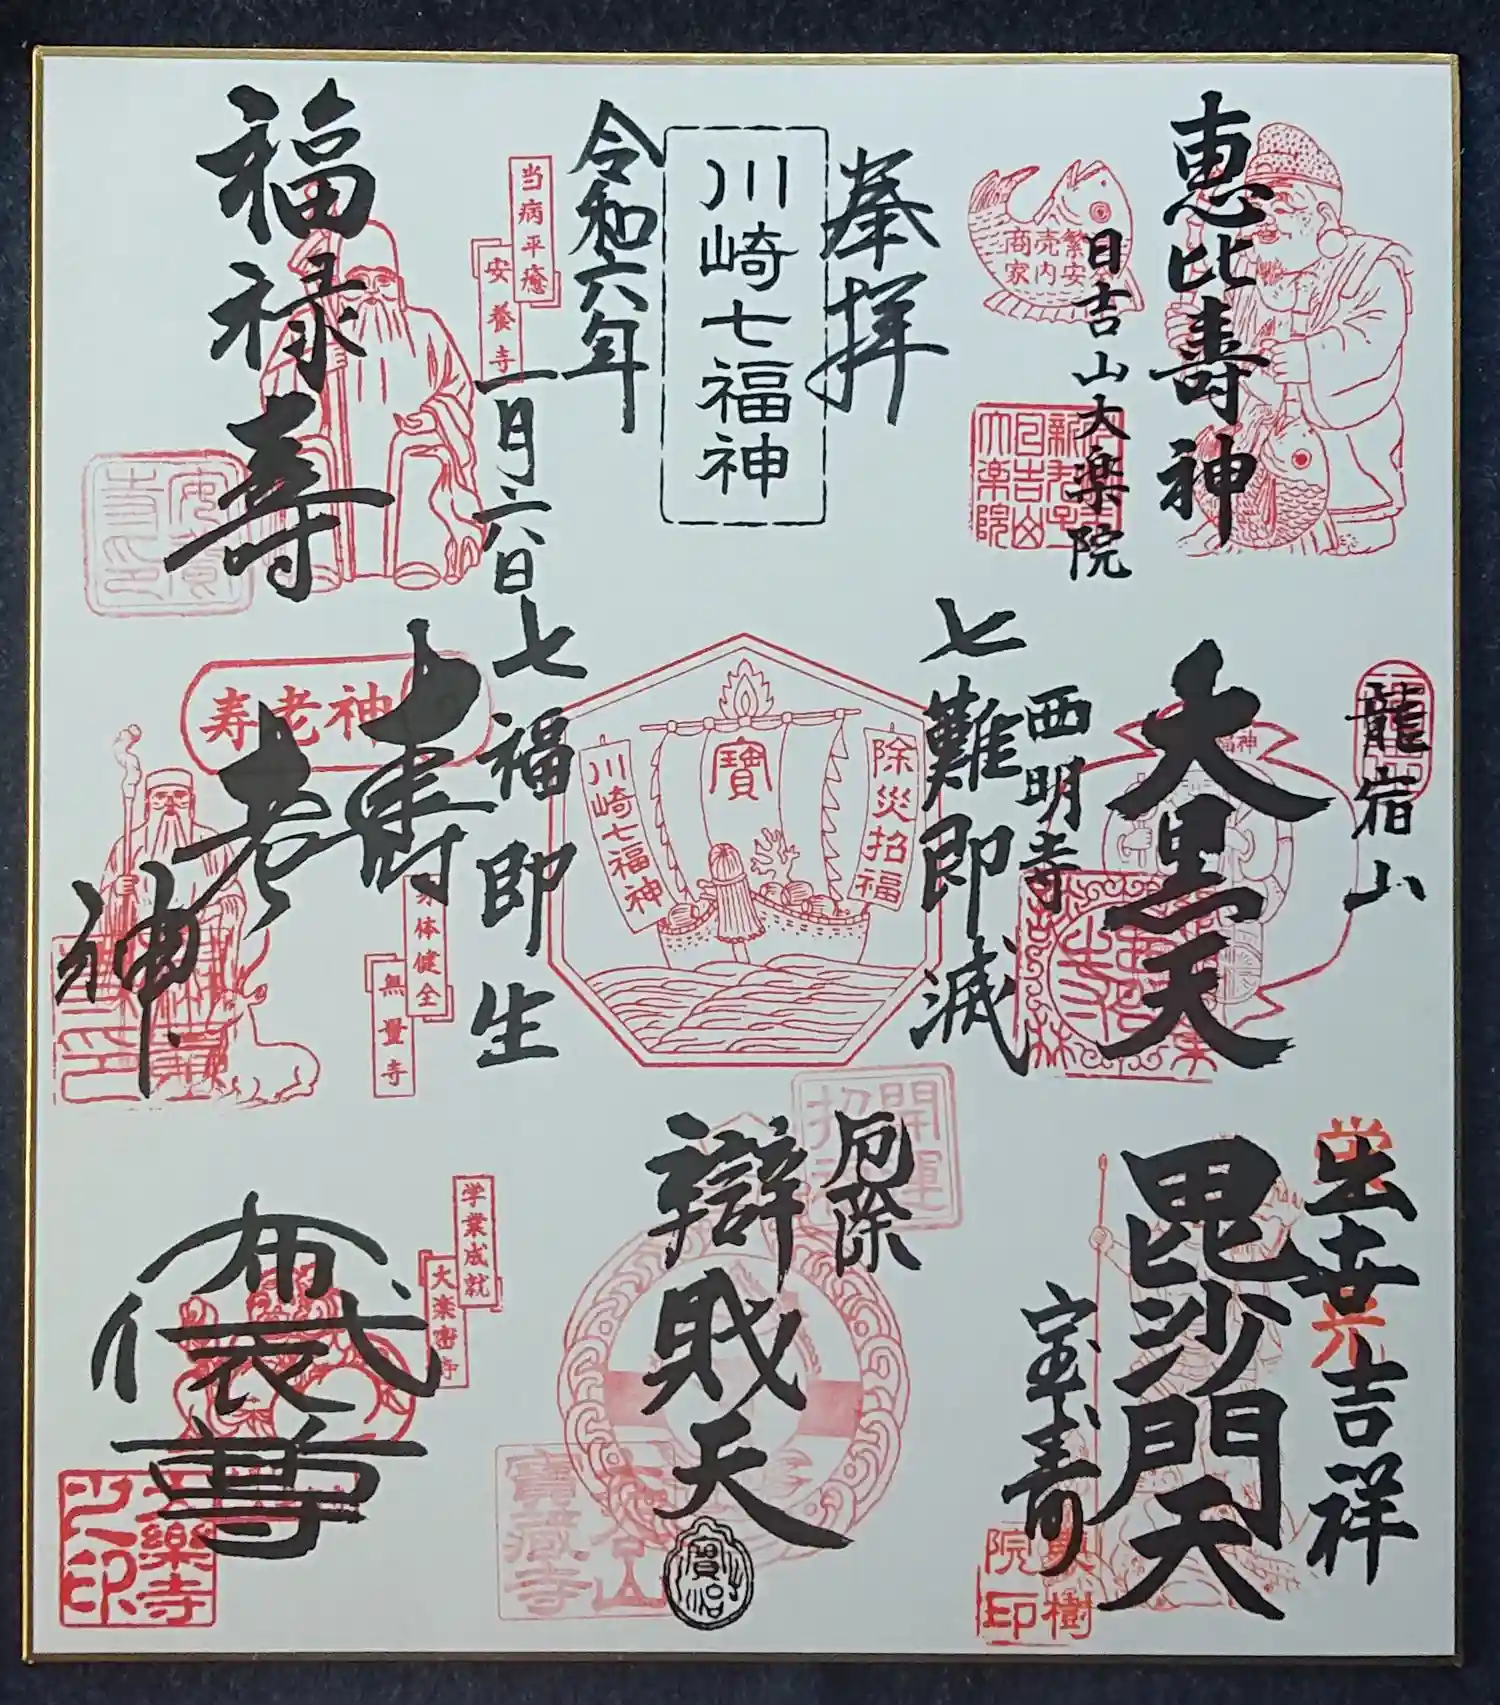 恵比寿神
日吉山大楽院
商売繁
家内安
奉拝
川崎七福神
令和六年
一月六日
当病平癒
安養寺
福禄寿
龍宿山
大黒天
西明寺
七難即滅
除災招福
寶
川崎七福神
七福即生
寿老神
寿老神
身体健全
無量寺
出世吉祥
毘沙門天
宝寿
院印
厄除
開運
辯財天
学業成就
大楽密寺
布袋尊
大樂寺
之印